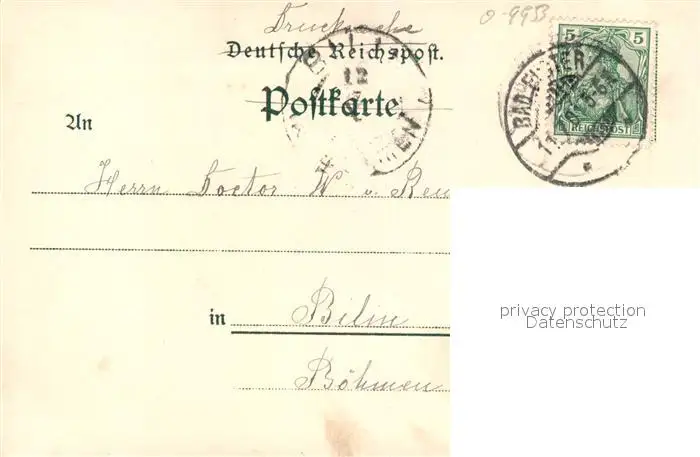 Drucksache
0-9953
Deutsche Reichspost.
Postkarte
5 5
REICHSPOST
BAD ELSTER
12
An
Herrn Doctor W v. Reu
in Bilin
Böhmen
privacy protection
Datenschutz